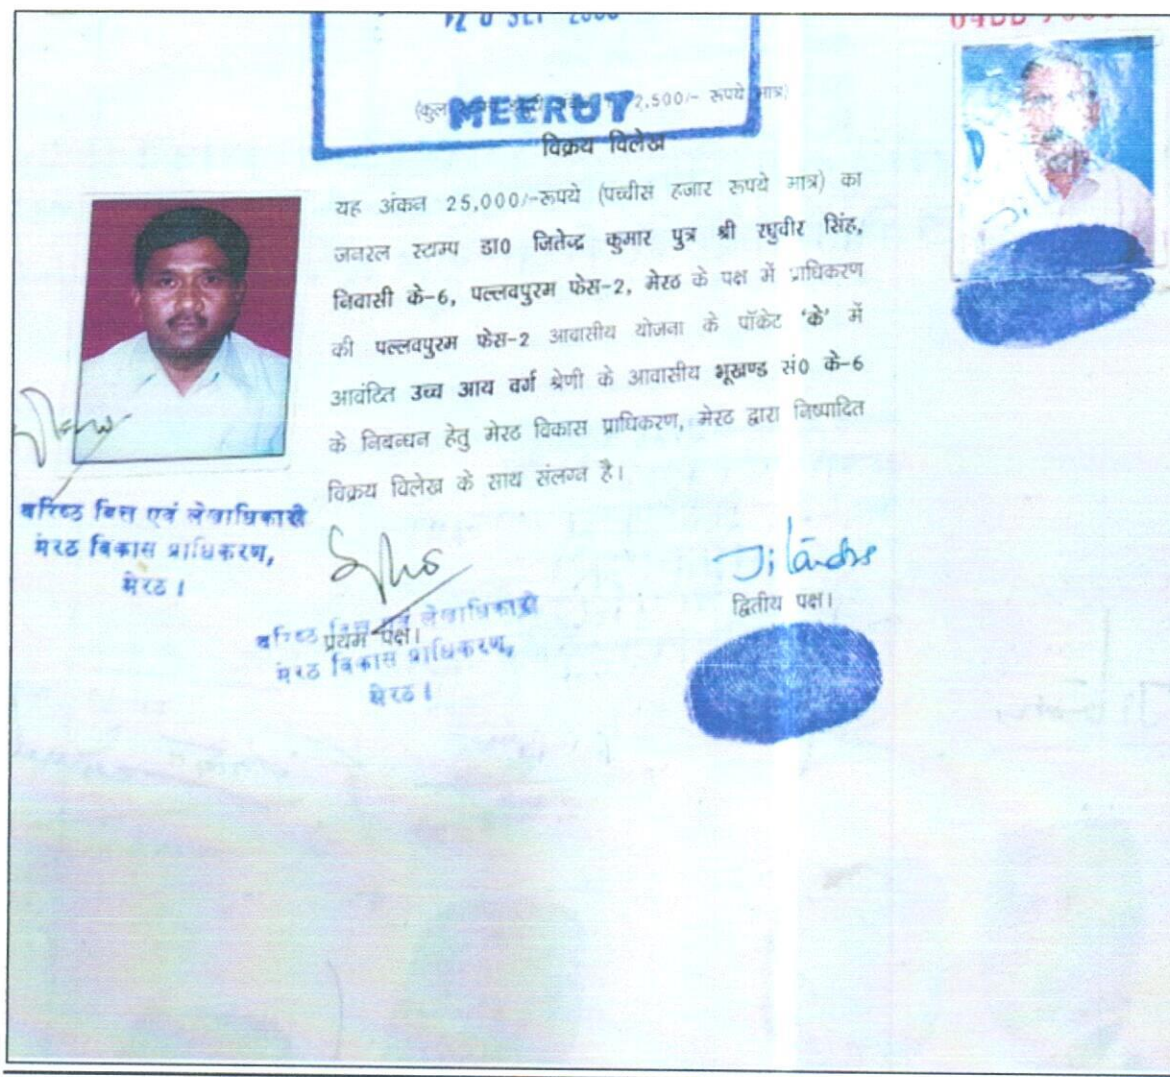 MEERUT
(कुल 2,500/- रूपये मात्र)
विक्रय विलेख
यह अंकन 25,000/-रूपये (पच्चीस हजार रूपये मात्र) का
जनरल स्टाम्प डा0 जितेन्द्र कुमार पुत्र श्री रघुवीर सिंह,
निवासी के-6, पल्लवपुरम फेस-2, मेरठ के पक्ष में प्राधिकरण
की पल्लवपुरम फेस-2 आवासीय योजना के पॉकेट 'के' में
आवंटित उच्च आय वर्ग श्रेणी के आवासीय भूखण्ड सं0 के-6
के निबन्धन हेतु मेरठ विकास प्राधिकरण, मेरठ द्वारा निष्पादित
विक्रय विलेख के साथ संलग्न है।
वरिष्ठ वित्त एवं लेखाधिकारी
मेरठ विकास प्राधिकरण,
मेरठ ।
प्रथम पक्ष।
वरिष्ठ वित्त एवं लेखाधिकारी
मेरठ विकास प्राधिकरण,
मेरठ ।
द्वितीय पक्ष।